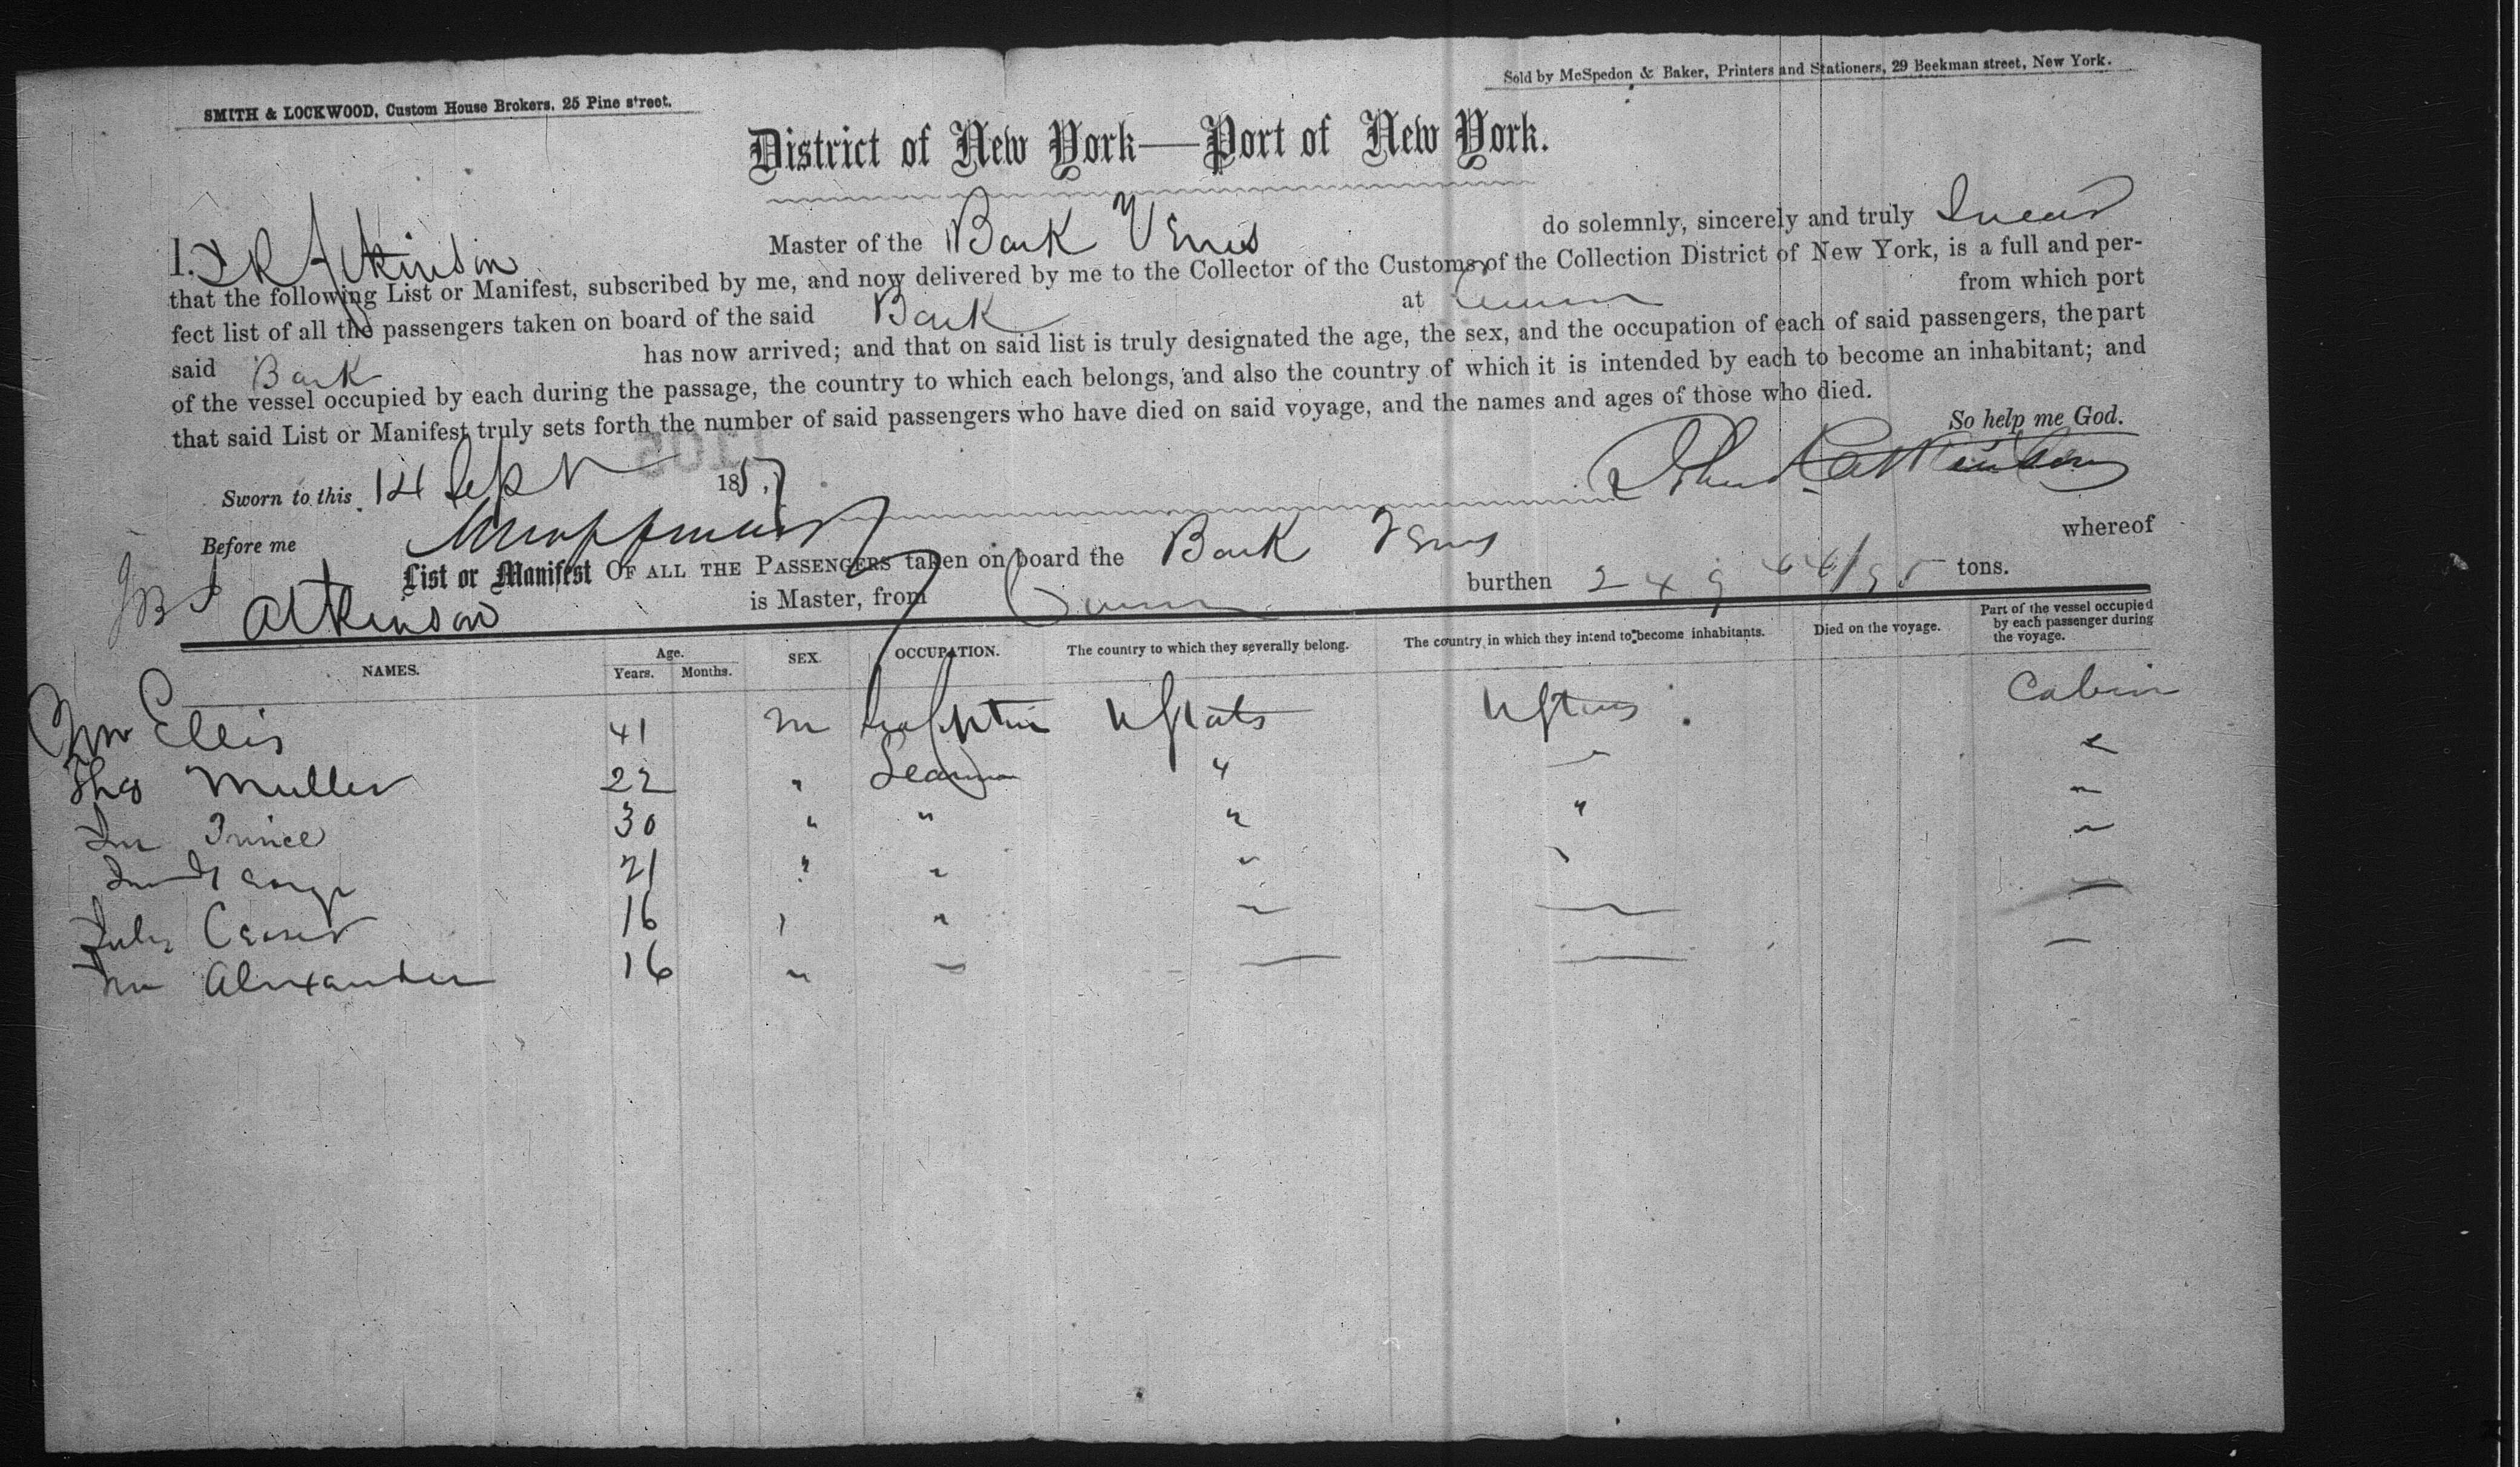 SMITH & LOCKWOOD, Custom House Brokers, 25 Pine street.
Sold by McSpedon & Baker, Printers and Stationers, 29 Beekman street, New York.
District of New York—Port of New York.
I, Atkinson Master of the Bark Venus do solemnly, sincerely and truly Swear
that the following List or Manifest, subscribed by me, and now delivered by me to the Collector of the Customs of the Collection District of New York, is a full and per-
fect list of all the passengers taken on board of the said Bark at from which port
said Bark has now arrived; and that on said list is truly designated the age, the sex, and the occupation of each of said passengers, the part
of the vessel occupied by each during the passage, the country to which each belongs, and also the country of which it is intended by each to become an inhabitant; and
that said List or Manifest truly sets forth the number of said passengers who have died on said voyage, and the names and ages of those who died.
So help me God.
Sworn to this 14 Sept 1857
Before me
List or Manifest OF ALL THE PASSENGERS taken on board the Bark Venus whereof
Atkinson is Master, from burthen 249 44/95 tons.
NAMES. Age. Years. Months. SEX. OCCUPATION. The country to which they severally belong. The country in which they intend to become inhabitants. Died on the voyage. Part of the vessel occupied by each passenger during the voyage.
Ellis 41 m U States U States Cabin
Thos Muller 22 " Seaman " " "
Prince 30 " " " " "
George 21 " " " " "
Ceaser 16 " " " " "
Wm Alexander 16 " " " " "